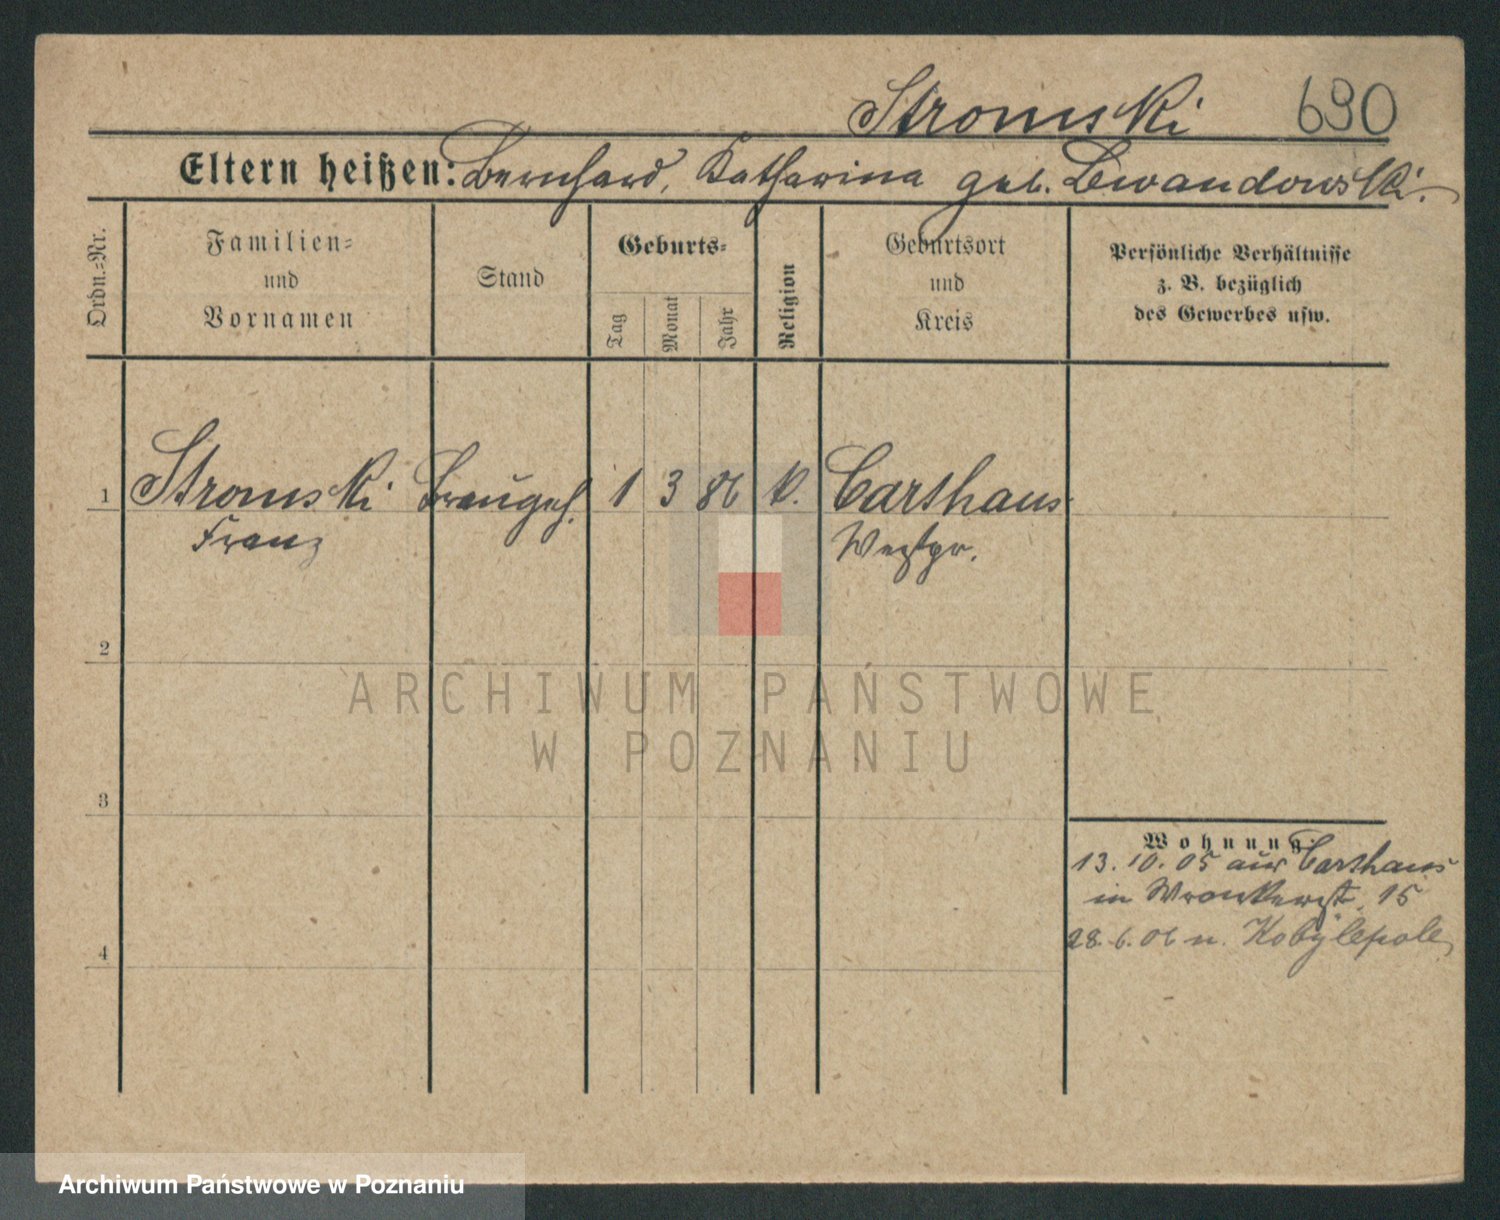 Stromski 690
Eltern heißen: Bernhard, Katharina geb. Lewandowski.
Ordn.=Nr.
Familien=
und
Vornamen
Stand
Geburts=
Tag
Monat
Jahr
Religion
Geburtsort
und
Kreis
Persönliche Verhältnisse
z. B. bezüglich
des Gewerbes usw.
1 Stromski Braugeh. 1 3 86 k. Carthaus
Franz Westpr.
2
ARCHIWUM PAŃSTWOWE
W POZNANIU
3
Wohnung:
13. 10. 05 aus Carthaus
in Wronkerst. 15
28. 6. 06 n. Kobylepole
4
Archiwum Państwowe w Poznaniu